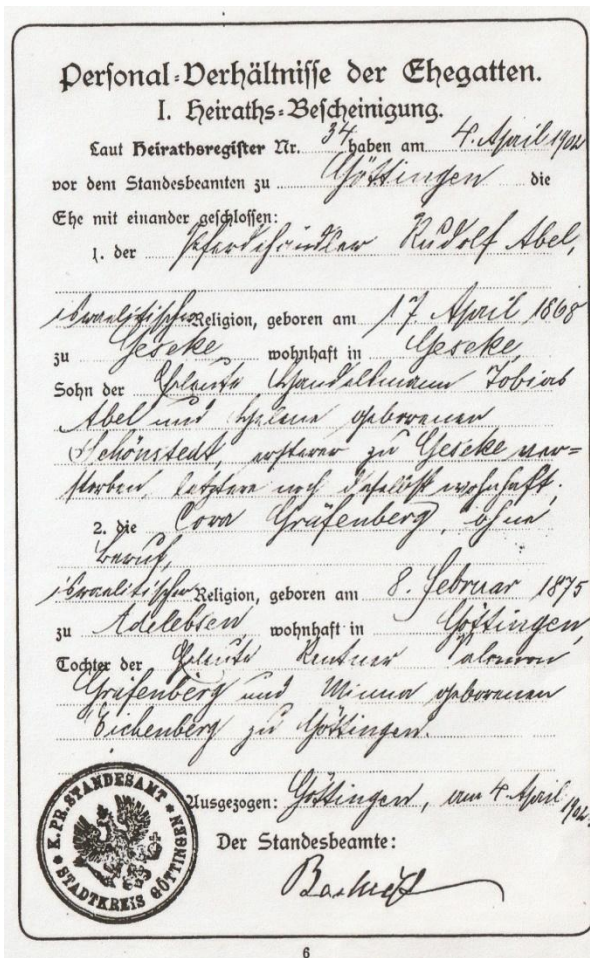 Personal-Verhältnisse der Ehegatten.
I. Heiraths-Bescheinigung.
Laut Heirathsregister Nr. 34 haben am 4. April 1902
vor dem Standesbeamten zu Göttingen die
Ehe mit einander geschlossen:
1. der Pferdehändler Rudolf Abel,
israelitischer Religion, geboren am 17. April 1868
zu Geseke wohnhaft in Geseke,
Sohn der Eheleute Handelsmann Tobias
Abel und Helene geborenen
Schönstedt ersterer zu Geseke ver=
storben, letztere noch daselbst wohnhaft.
2. die Cora Gräfenberg, ohne
Beruf,
israelitischer Religion, geboren am 8. Februar 1875
zu Adelebsen, wohnhaft in Göttingen,
Tochter der Eheleute Rentner Salomon
Gräfenberg und Minna geborenen
Eichenberg zu Göttingen.
K. PR. STANDESAMT
STADTKREIS GÖTTINGEN
Ausgezogen: Göttingen, am 4. April 1902.
Der Standesbeamte:
6